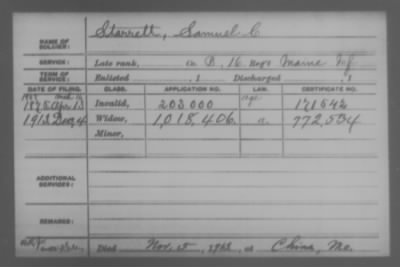 NAME OF SOLDIER: Starrett, Samuel C
SERVICE: Late rank, Co. B, 16 Reg't Maine Inf
TERM OF SERVICE: Enlisted , 1 Discharged , 1
DATE OF FILING. CLASS. APPLICATION NO. LAW. CERTIFICATE NO.
Invalid, 203000 171642
1913 Dec, 4 Widow, 1,018,406. a. 772,534
Minor,
ADDITIONAL SERVICES:
REMARKS:
Died Nov. 5, 1913, at China, Me.